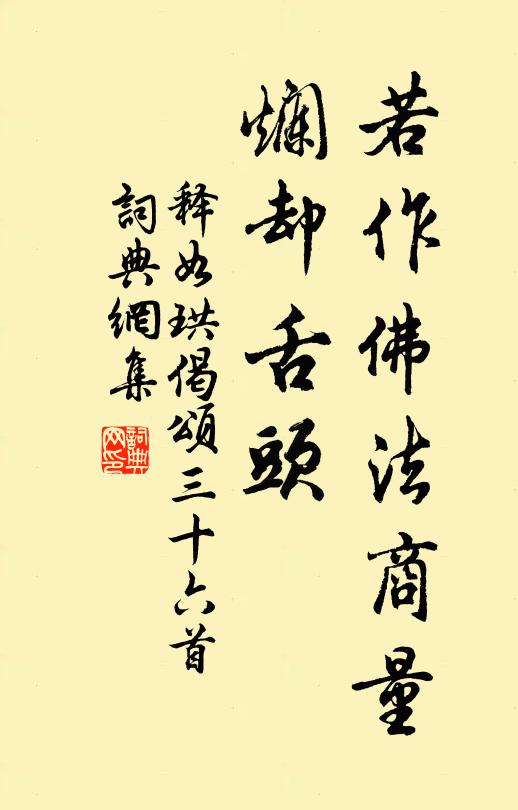 若作佛法商量
爛却舌頭
释如珙偈頌三十六首
詞典網集
詞典
网印